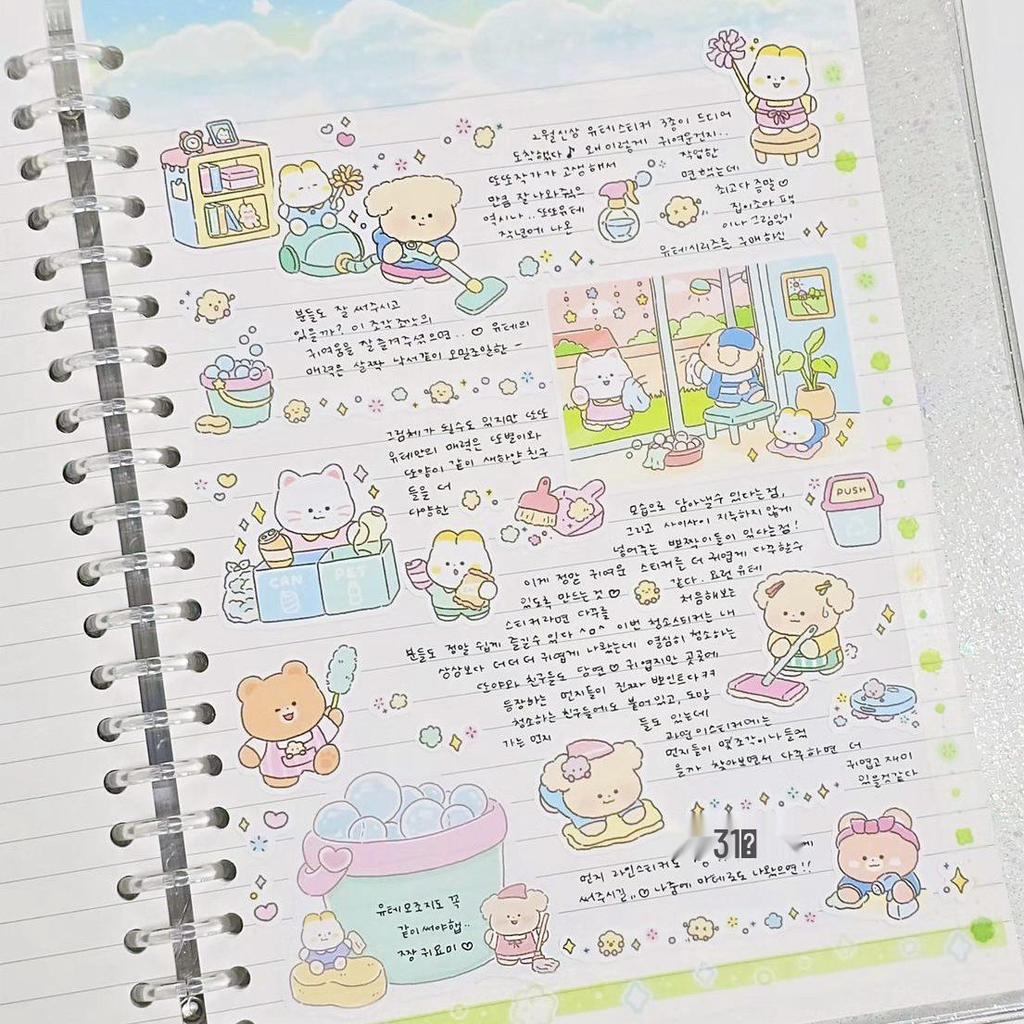 2월신상 유테스티커 3종이 드디어
도착했다♪ 왜이렇게 귀여운건지..
또또작가가 고생해서 작업한
만큼 잘 나와줬으면 했는데
역시나.. 또또유테 최고다 증말♡
작년에 나온 집이좋아 팩
이나 그림일기
유테시리즈를 구매하신
분들도 잘 써주시고
있을까? 이 조각조각의
귀여움을 잘 즐겨주셨으면.. ♡ 유테의
매력은 살짝 낙서같이 오밀조밀한 ~
그림체가 될수도 있지만 또또
유테만의 매력은 또별이와
또양이 같이 새하얀 친구
들을 더
다양한
모습으로 담아낼수 있다는점,
그리고 사이사이 지루하지 않게
넣어주는 뽀짝이들이 있다는점!
이게 정말 귀여운 스티커를 더 귀엽게 다꾸할수
있도록 만드는 것♡ 같다. 요런 유테
스티커라면 다꾸를 처음해보는
분들도 정말 쉽게 즐길수 있다 ^o^ 이번 청소스티커는 내
상상보다 더더더 귀엽게 나왔는데 열심히 청소하는
또야와 친구들도 당연♡ 귀엽지만 곳곳에
등장하는 먼지들이 진짜 뽀인트다ㅋㅋ
청소하는 친구들에도 붙어있고, 도망
가는 먼지 들도 있는데
과연 이스티커에는
먼지들이 몇조각이나 들었
을까 찾아보면서 다꾸하면 더
귀엽고 재미
있을것같다
먼지 라인스티커도
써주시길,,♡ 나중에 마테로도 나왔으면!!
유테모조지도 꼭
같이 써야햅..
짱 귀요미♡
CAN
PET
PUSH
31